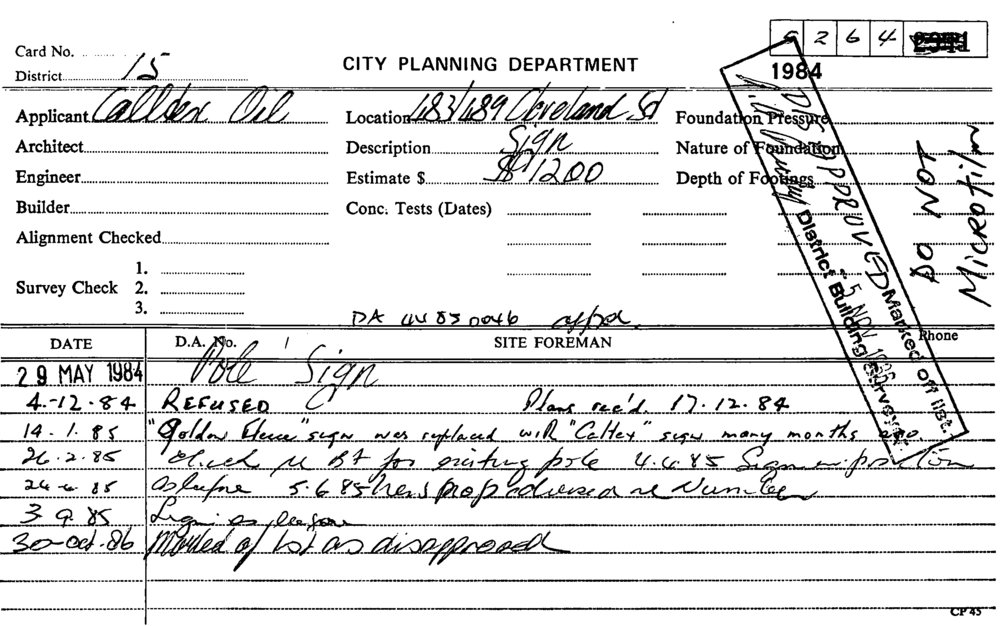 Card No.
5 2 6 4
District 15
CITY PLANNING DEPARTMENT
1984
Applicant Calltex Oil
Location 483/489 Cleveland St
Foundation Pressure
Architect
Description Sign
Nature of Foundation
Engineer
Estimate $ $1200
Depth of Footings
Builder
Conc. Tests (Dates)
Alignment Checked
Survey Check
1.
2.
3.
DISAPPROVED
Marked off list.
5 NOV 1986
District Building Surveyor
DO NOT
Microfilm
DA 44 85 0046 appd.
DATE
D.A. No.
SITE FOREMAN
Phone
29 MAY 1984 Pole Sign
4.-12.84 REFUSED Plans rec'd. 17.12.84
14.1.85 "Golden Fleece" sign was replaced with "Caltex" sign many months ago.
26.2.85 Check re BA for existing pole 4.4.85 Sign in position
24.4.85 As before 5.6.85 new prop advised re Number
3 9.85 Sign as before
30-Oct.86 Marked of list as disapproved
CP 45